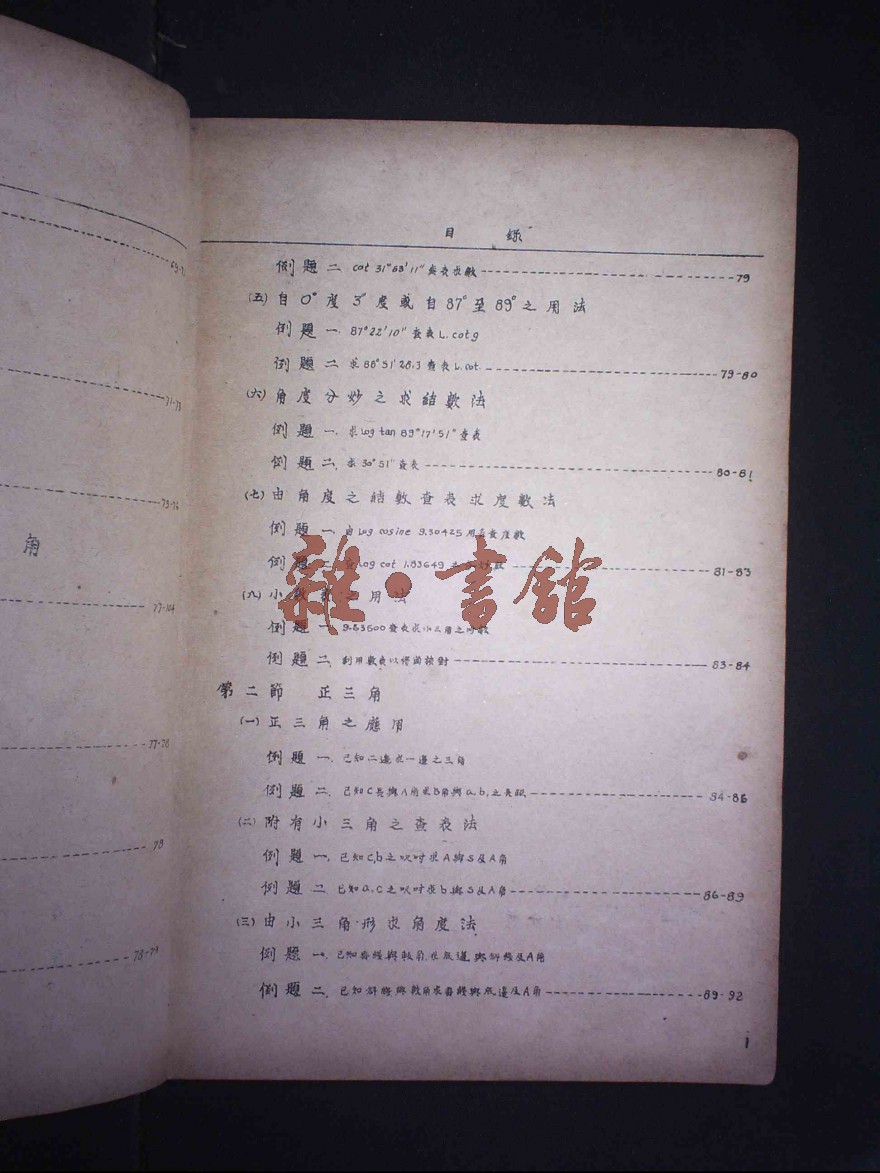 69-7
71-73
73-76
角
77-104
77-78
78
78-79
目 錄
例題二 cot 31°63'11" 查表求數 79
㈤ 自0°度3°度或自87°至89°之用法
例題一. 87°22'10" 查表L.cotg
例題二 求86°51'28.3 查表L.cot. 79-80
㈥ 角度分妙之求結數法
例題一. 求log tan 89°17'51" 查表
例題二. 求30°51" 查表 80-81
㈦ 由角度之結數查表求度數法
例題一. 由Log cosine 9.30425用
例題二. log cot 1.83649 81-83
㈧ 小數之用法
例題一. 9.83600查表求小三角之
例題二. 利用數表以得面積對 83-84
雜·書館
第二節 正三角
㈠ 正三角之應用
例題一. 已知二邊求一邊之三角
例題二. 已知C長與A角求B角與a.b.之長 84-86
㈡ 附有小三角之查表法
例題一. 已知c,b之呎吋求A與S及A角
例題二 已知a.c之呎吋求b與S及A角 86-89
㈢ 由小三角形求角度法
例題一. 已知 與 求底邊與斜 及A角
例題二. 已知斜 與 求 與底邊及A角 89-92
1